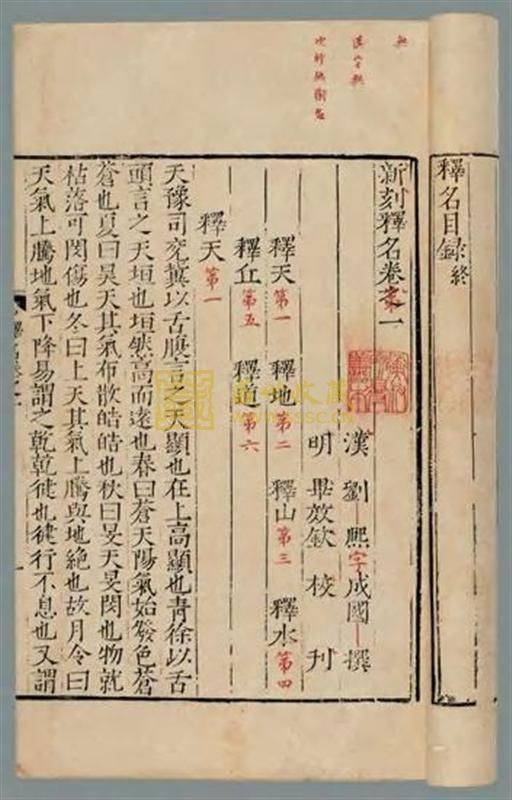 釋名目録終
新刻釋名卷之一
漢劉熙字成國撰
明畢效欽校刊
釋天第一 釋地第二 釋山第三 釋水第四
釋丘第五 釋道第六
釋天第一
天豫司兖冀以舌腹言之天顯也在上高顯也青徐以舌
頭言之天垣也垣然高而遠也春曰蒼天陽氣始發色蒼
蒼也夏曰昊天其氣布散皓皓也秋曰旻天旻閔也物就
枯落可閔傷也冬曰上天其氣上騰與地絶也故月令曰
天氣上騰地氣下降易謂之乾乾徤也徤行不息也又謂